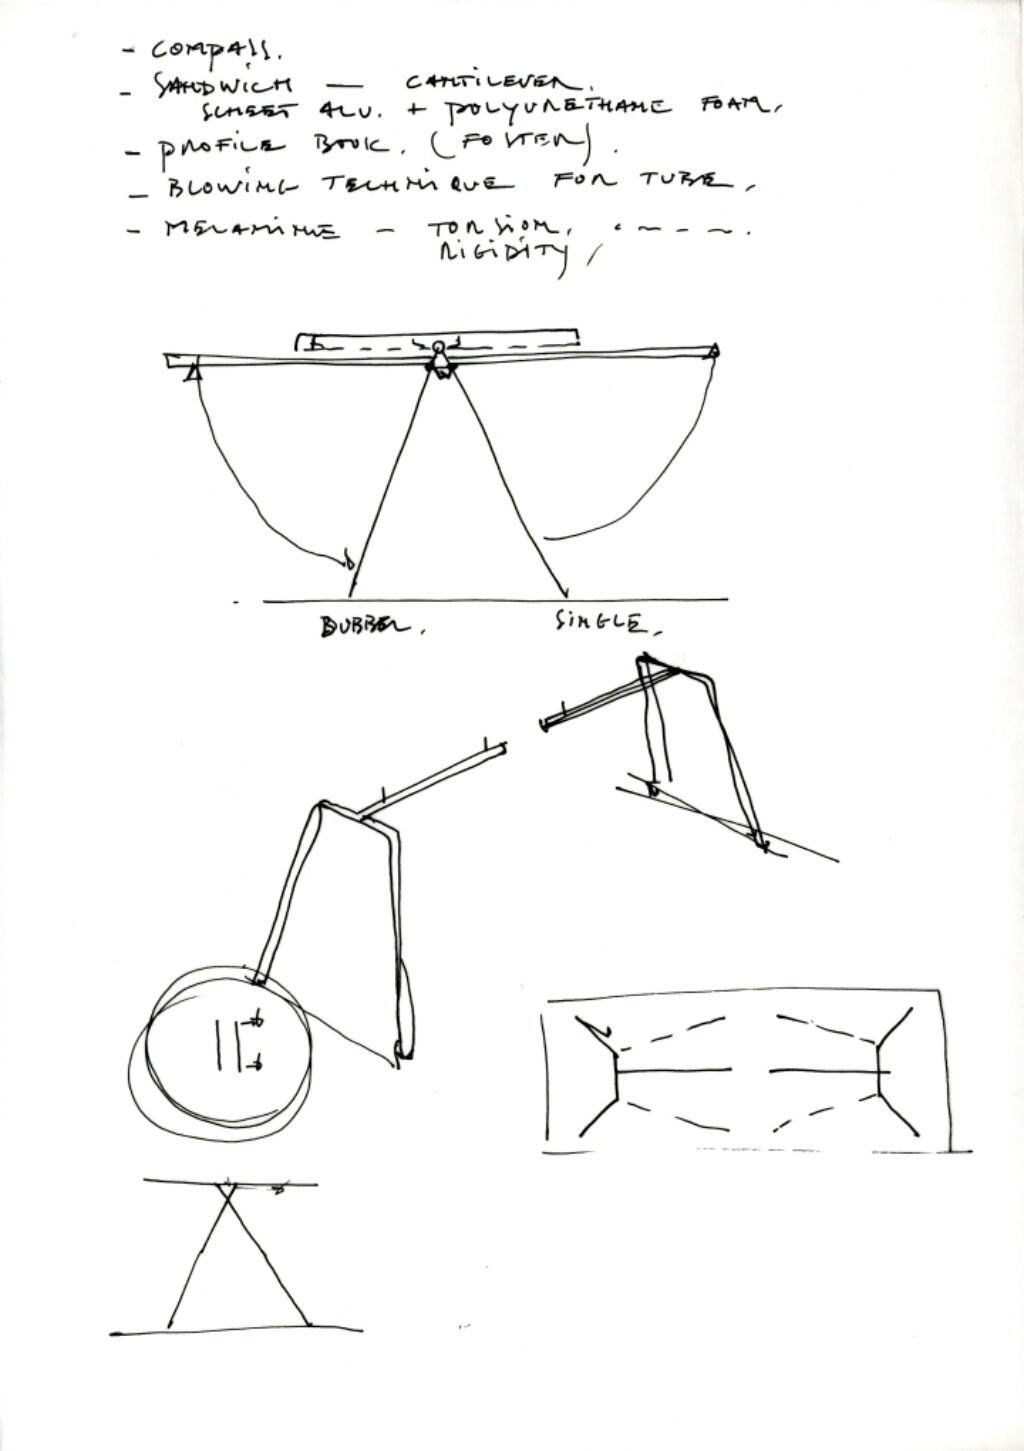 - COMPASS.
- SANDWICH — CANTILEVER.
SHEET ALU. + POLYURETHANE FOAM.
- PROFILE BOOK. (FOSTER).
- BLOWING TECHNIQUE FOR TUBE,
- MELAMINE - TORSION, " - - - .
RIGIDITY,
DUBBEL.
SINGLE.